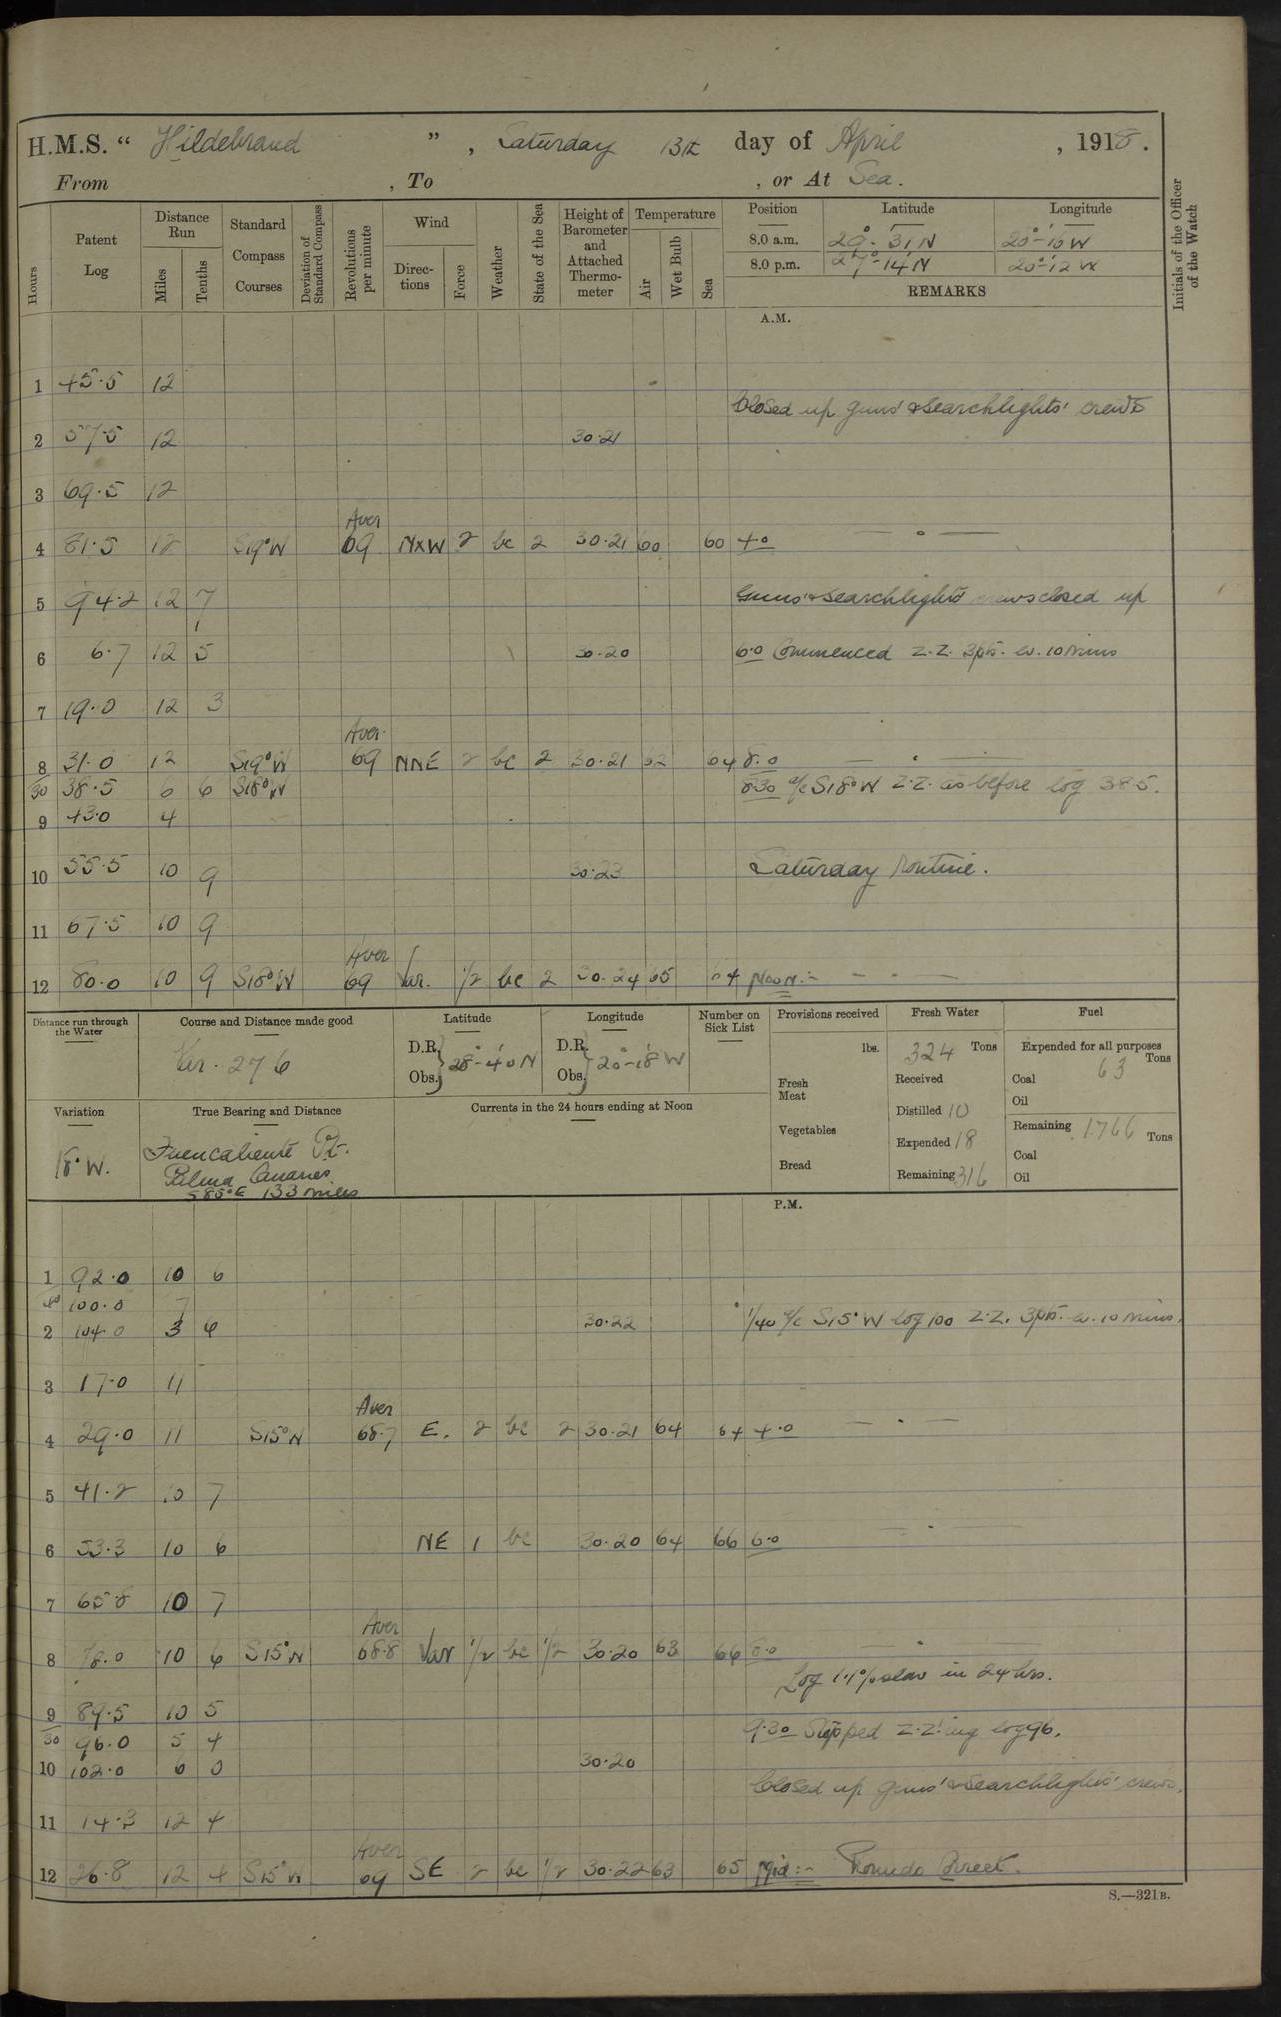 H.M.S. “ Hildebrand ” , Saturday 13th day of April , 1918 .
From , To , or At Sea .
Hours
Patent Log
Distance Run
Miles
Tenths
Standard Compass Courses
Deviation of Standard Compass
Revolutions per minute
Wind
Directions
Force
Weather
State of the Sea
Height of Barometer and Attached Thermometer
Temperature
Air
Wet Bulb
Sea
Position Latitude Longitude
8.0 a.m. 29°-31'N 20°-10'W
8.0 p.m. 27°-14'N 20°-12'W
REMARKS
Initials of the Officer of the Watch
A.M.
1 45.5 12
Closed up guns' & Searchlights' crews
2 57.5 12 30.21
3 69.5 12
Aver
4 81.5 12 S19°W 69 NxW 2 bc 2 30.21 60 60 4.0
5 94.2 12 7 Guns' & Searchlights crews closed up
6 6.7 12 5 30.20 6.0 Commenced Z.Z. 3pts. ev. 10 mins
7 19.0 12 3
Aver.
8 31.0 12 S19°W 69 NNE 2 bc 2 30.21 62 64 8.0
30 38.5 6 6 S18°W 8.30 a/c S18°W Z.Z. as before log 38.5.
9 43.0 4
10 55.5 10 9 30.23 Saturday Routine.
11 67.5 10 9
Aver
12 80.0 10 9 S18°W 69 Var. 1/2 bc 2 30.24 65 64 Noon:-
Distance run through the Water
Course and Distance made good
Var. 276
Latitude
D.R.
Obs. 28°-40'N
Longitude
D.R.
Obs. 20°-18'W
Number on Sick List
Provisions received
lbs.
Fresh Meat
Vegetables
Bread
Fresh Water
324 Tons
Received
Distilled 10
Expended 18
Remaining 316
Fuel
Expended for all purposes
63 Tons
Coal
Oil
Remaining 1766 Tons
Coal
Oil
Variation
18°W.
True Bearing and Distance
Fuencaliente Pt.
Palma Canaries
S85°E 133 miles
Currents in the 24 hours ending at Noon
P.M.
1 92.0 10 6
40 100.0 7
2 104.0 3 6 30.22 1/40 a/c S15°W Log 100 Z.Z. 3pts. ev. 10 mins.
3 17.0 11
Aver
4 29.0 11 S15°W 68.7 E. 2 bc 2 30.21 64 64 4.0
5 41.2 10 7
6 53.3 10 6 NE 1 bc 30.20 64 66 6.0
7 65.8 10 7
Aver
8 78.0 10 6 S15°W 68.8 Var 1/2 bc 1/2 30.20 63 66 8.0
Log 1.1% slow in 24 hrs.
9 89.5 10 5
30 96.0 5 4 9.30 Stopped Z.Z'.ing log 96.
10 102.0 6 0 30.20
Closed up guns' & Searchlights' crews.
11 14.3 12 4
Aver
12 26.8 12 4 S15°W 69 SE 2 bc 1/2 30.22 63 65 Mid:- Rounds Correct.
S.—321B.